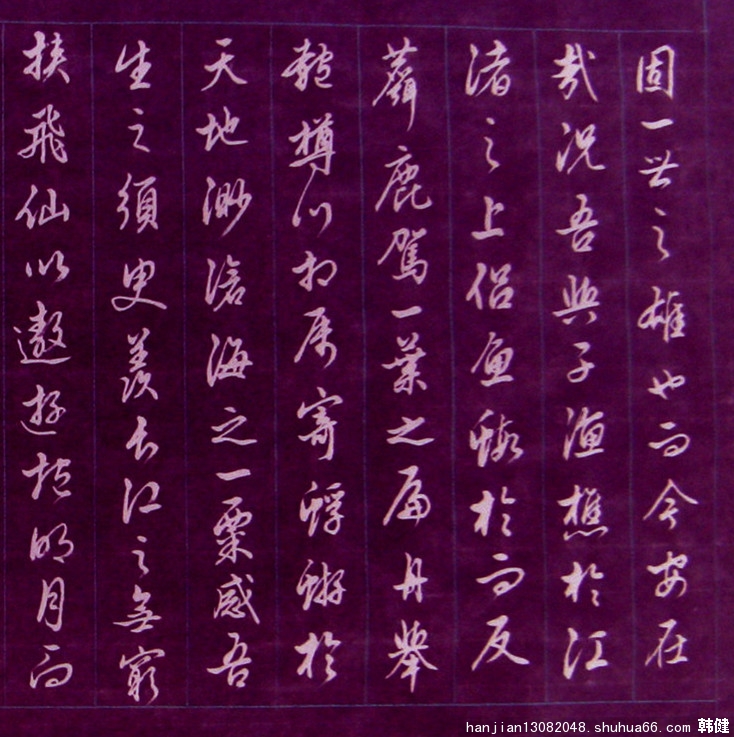 固一世之雄也而今安在
哉况吾與子漁樵於江
渚之上侣魚蝦於而反
鹿駕一葉之扁舟舉
匏樽以相属寄蜉蝣於
天地渺滄海之一粟感吾
生之須臾羡長江之無窮
挟飛仙以遨遊抱明月而
hanjian13082048.shuhua66.com 韩健